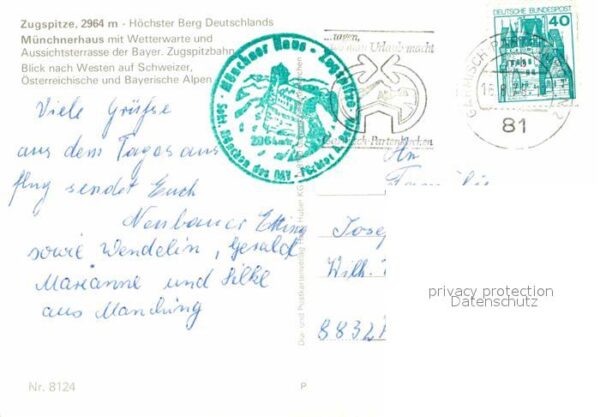 Zugspitze, 2964 m - Höchster Berg Deutschlands
Münchnerhaus mit Wetterwarte und
Aussichtsterrasse der Bayer. Zugspitzbahn
Blick nach Westen auf Schweizer,
Österreichische und Bayerische Alpen
Münchner Haus - Zugspitze
2964 m
Sekt. München des DAV -
Urlaub macht
-Partenkirchen
DEUTSCHE BUNDESPOST
40
81
Viele Grüße
aus dem Tagesaus
flug sendet Euch
Neubauer
sowie Wendelin, Gerald
Marianne und Silke
aus Manching
An
Josef
Wilh.
8832
privacy protection
Datenschutz
Nr. 8124
P